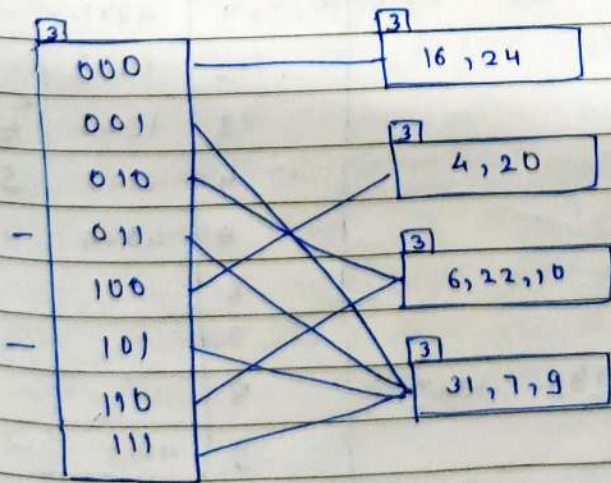 3
000
001
010
- 011
100
- 101
110
111
3
16, 24
3
4, 20
3
6, 22, 10
3
31, 7, 9